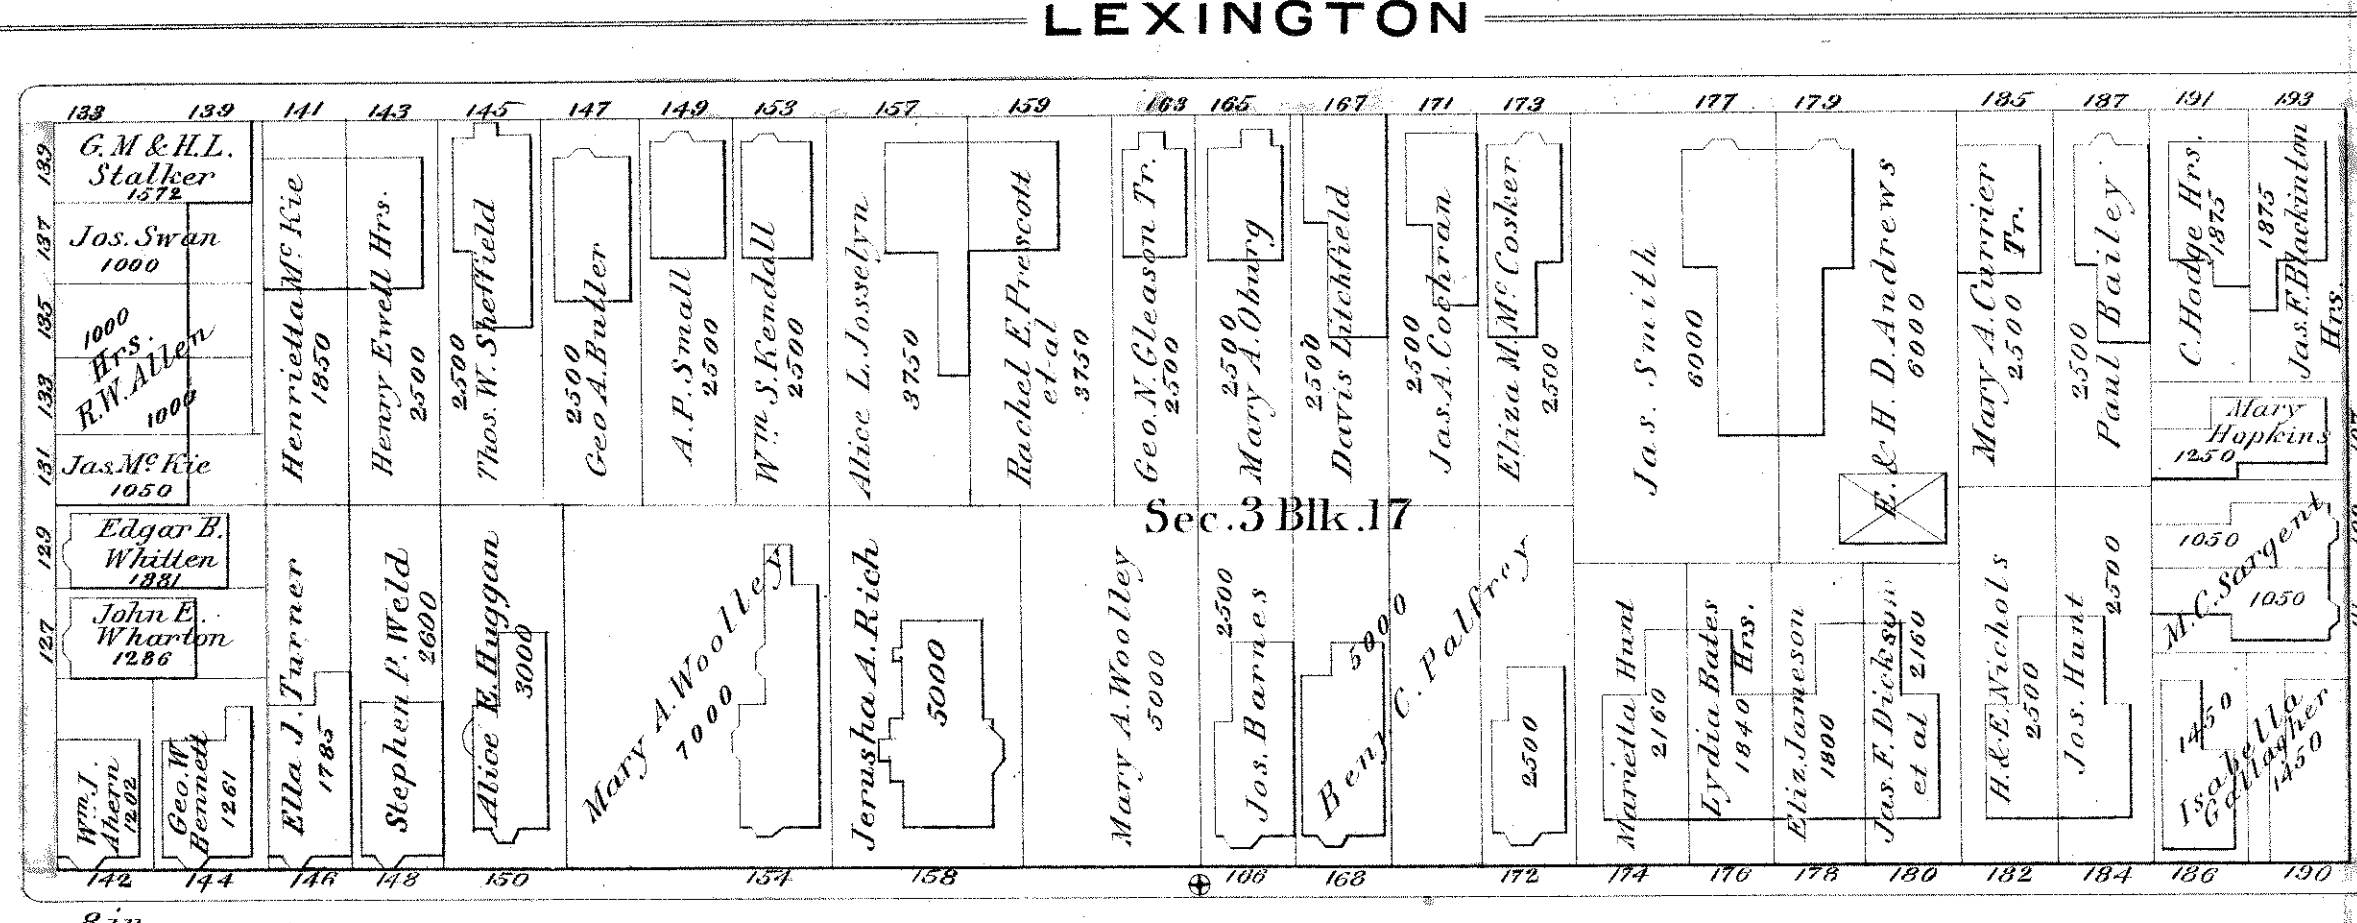 LEXINGTON
133 139 141 143 145 147 149 153 157 159 163 165 167 171 173 177 179 185 187 191 193
139
G. M & H. L.
Stalker
1572
137
Jos. Swan
1000
135
1000
Hrs.
R. W. Allen
133
1000
131
Jas. Mc Kie
1050
129
Edgar B.
Whitten
1331
127
John E.
Wharton
1286
Henrietta Mc Kie
1850
Henry Ewell Hrs.
2500
2500
Thos. W. Sheffield
2500
Geo A. Butler
A. P. Small
2500
Wm S. Kendall
2500
Alice L. Josselyn
3750
Rachel E. Prescott
et al
3750
Geo. N. Gleason Tr.
2500
2500
Mary A. Oburg
2500
Davis Litchfield
2500
Jas. A. Cochran
Eliza M. Mc Cosker
2500
Jas. Smith
6000
E. & H. D. Andrews
6000
Mary A. Currier
Tr.
2500
2500
Paul Bailey
C. Hodge Hrs.
1875
1875
Jas. F. Blackinton
Hrs.
Mary
Hopkins
1250
Sec. 3 Blk. 17
1050
M. C. Sargent
1050
Wm J.
Ahern
1202
Geo. W.
Bennett
1261
Ella J. Turner
1785
Stephen P. Weld
2600
Alice E. Huggan
3000
Mary A. Woolley
7000
Jerusha A. Rich
5000
Mary A. Woolley
5000
2500
Jos. Barnes
5000
Benj. C. Palfrey
2500
Marietta Hunt
2160
Lydia Bates
Hrs.
1840
Eliz. Jameson
1800
Jas. F. Dickson
et al 2160
H. & E. Nichols
2500
Jos. Hunt
2500
1450
Isabella
Gallagher
1450
142 144 146 148 150 154 158 166 168 172 174 176 178 180 182 184 186 190